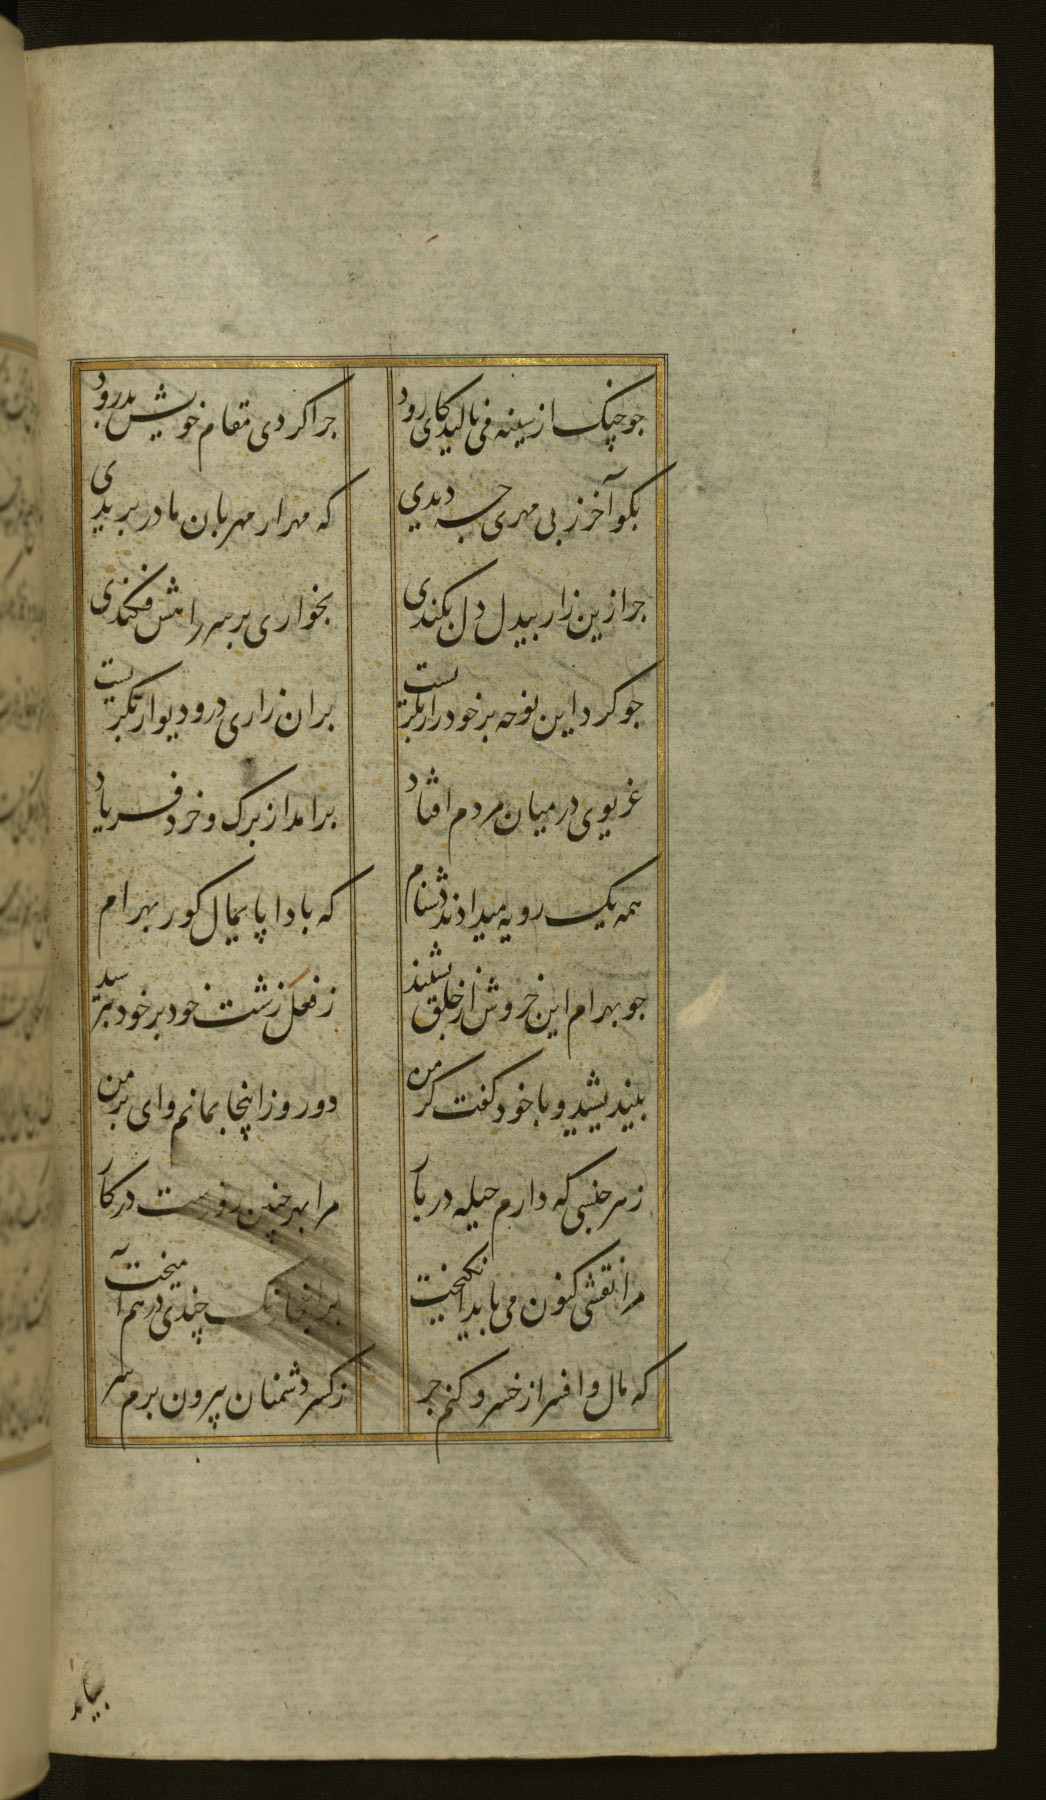 جو چنک از سینه می نالید کای رود جرا کردی مقام خویش بدرود
بکو آخر ز بی مهری جه دیدی که مهر از مهربان مادر بریدی
جرا زین زار بیدل دل بکندی بخواری بر سر راهش فکندی
جو کرد این نوحه بر خود زار بکریست بران زاری در و دیوار بکریست
غریوی در میان مردم افتاد برامد از بزرک و خرد فریاد
همه یک رویه میدادند دشنام که بادا پایمال کور بهرام
جو بهرام این خروش از خلق بشنید ز فعل زشت خود بر خود بترسید
بیندیشید و با خود کفت کر من دو روز اینجا بمانم وای بر من
ز هر جنسی که دارم حیله در بار مرا بهر جنین روزست در کار
مرا نقشی کنون می باید انکیخت بر اینجا رنک چندی در هم آمیخت
که مال و افسر از خسرو کنم جر ز کسر دشمنان بیرون برم سر
بیامد